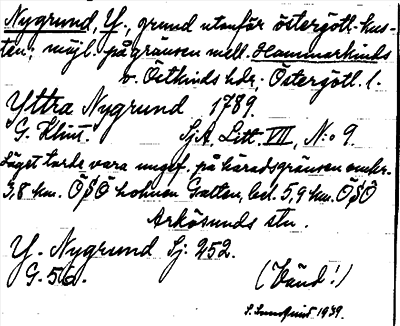 Nygrund, Y., grund utanför östergötl. kus-
ten; möjl. på gränsen mell. Hammarkinds
o. Östkinds hdr, Östergötl. l.
Yttra Nygrund 1789.
G. Klint. SjA. Litt. VII, N:o 9.
Läget torde vara ungef. på häradsgränsen omkr.
3,8 km. ÖSÖ holmen Gratten, bel. 5,9 km. ÖSÖ
Arkösunds stn.
Y. Nygrund Sj. 252.
G. 5a. (Vänd!)
S. Lundqvist 1939.